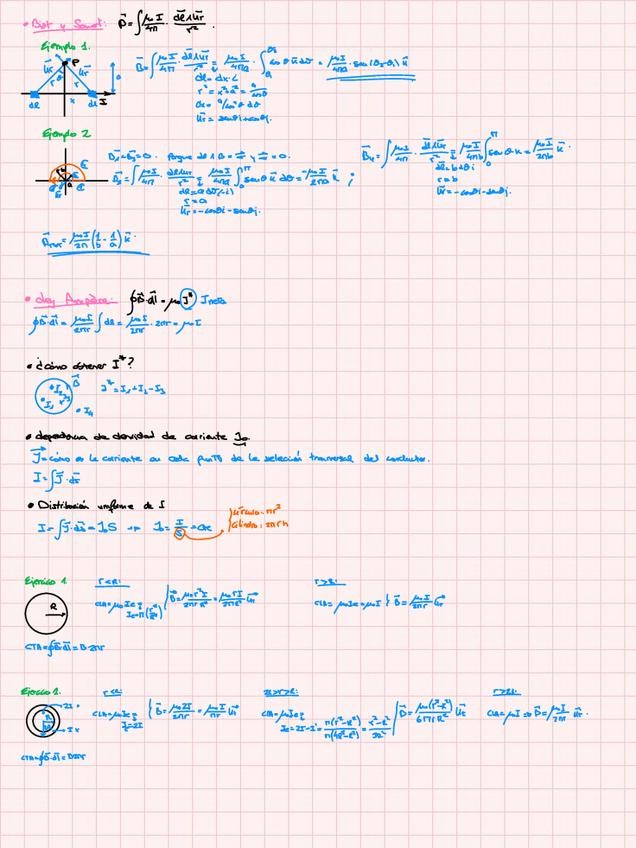 • Biot y Savart: B⃗ = ∫ μ₀I/4π · d⃗l∧u⃗r/r² .
Ejemplo 1.
P
u⃗r u⃗r
r θ r
a
dl x dl I
B⃗ = ∫ μ₀I/4π · d⃗l∧u⃗r/r² = μ₀I/4πa · ∫ cosθ k⃗ dθ = μ₀I/4πa · sen(θ₂-θ₁) k⃗
dl = dx · i
r² = x²+a² = a/cosθ
dx = a/cos²θ dθ
u⃗r = senθi+cosθj.
Ejemplo 2
B₁=B₃=0. Porque dl∧B = → y → = 0.
B⃗₂ = ∫ μ₀I/4π · d⃗l∧u⃗r/r² = μ₀I/4πa ∫₀^π senθ k⃗ dθ = -μ₀I/2πa k⃗ ;
r = a
u⃗r = -cosθi - senθj.
B⃗₄ = ∫ μ₀I/4π · d⃗l∧u⃗r/r² = μ₀I/4πb ∫₀^π senθ k = μ₀I/2πb k⃗.
dl = b dθ i
r = b
u⃗r = -cosθi - senθj.
B⃗ = μ₀I/2π (1/b - 1/a) k⃗
• Ley Ampère: ∮B⃗·d⃗l = μ₀ I* I neta
∮B⃗·d⃗l = μ₀I/2πr ∫ dl = μ₀I/2πr · 2πr = μ₀I
• ¿Cómo obtener I*?
B⃗
I* = I₁+I₂-I₃
• I₄
• dependencia de densidad de corriente J₀
J⃗ = cómo es la corriente en cada punto de la selección transversal del conductor.
I = ∫J⃗·d⃗s
• Distribución uniforme de I
I = ∫J⃗·d⃗s = J₀S → J₀ = I/S = cte
círculo: πr²
cilindro: 2πrh
Ejercicio 1.
R
r<R:
B⃗ = μ₀r²I/2πrR² = μ₀rI/2πR² u⃗r
r>R:
CLA = μ₀Ie = μ₀I } B⃗ = μ₀I/2πr u⃗r
CTA = ∮B⃗·d⃗l = B·2πr
Ejercicio 2.
2I •
I x
r<R:
CLA = μ₀Ie
Ie = 2I
B⃗ = μ₀2I/2πr = μ₀I/πr u⃗r
2R>r>R:
CLA = μ₀Ie
B⃗ = μ₀(r²-R²)/6πrR² u⃗r
r>2R:
CLA = μ₀I ⇒ B⃗ = μ₀I/2πr u⃗r.
CTA = ∮B⃗·d⃗l = B2πr